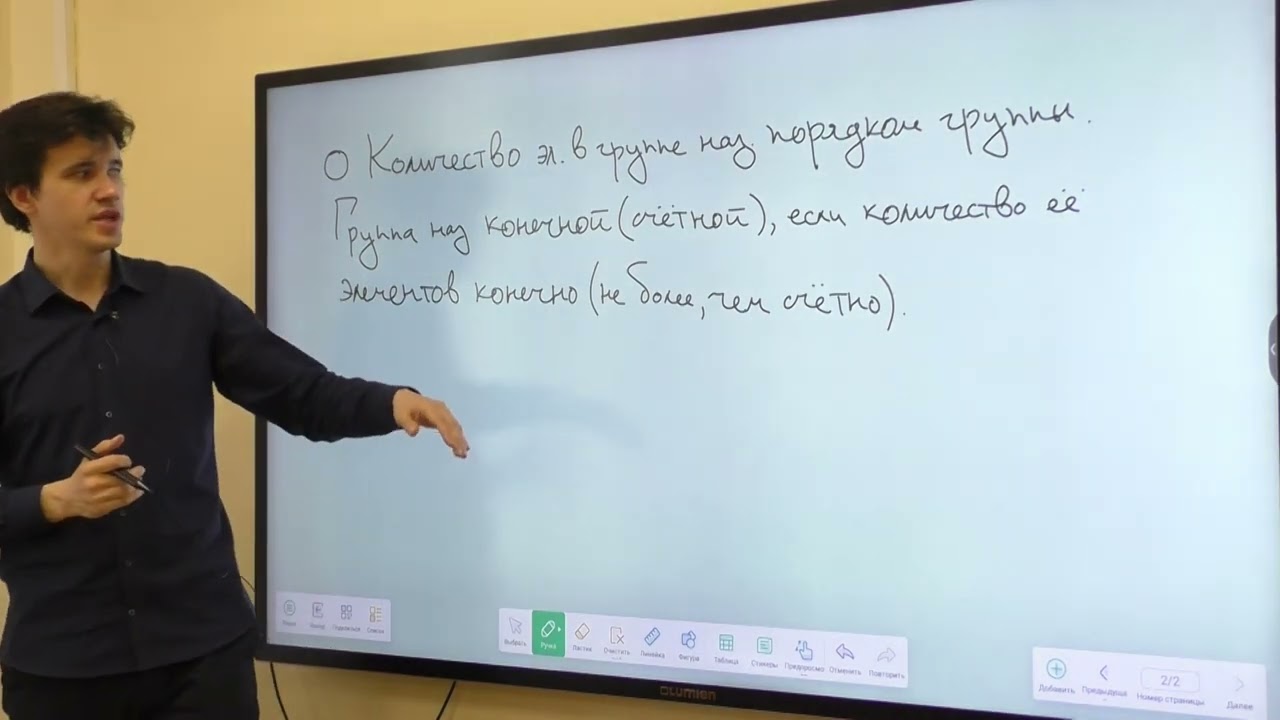 О Количество эл. в группе наз. порядком группы.
Группа наз конечной (счётной), если количество её
элементов конечно (не более, чем счётно).
Выбрать Ручка Ластик Очистить Линейка Фигура Таблица Стикеры Предпросмо Отменить Повторить
Добавить Предыдуща 2/2 Номер страницы Далее